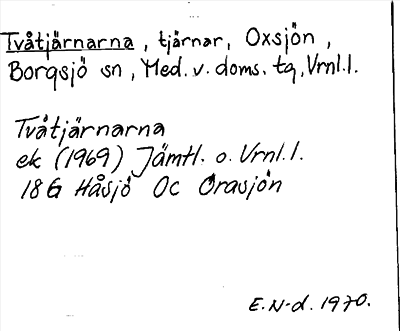 Tvåtjärnarna, tjärnar, Oxsjön,
Borgsjö sn, Med. v. doms. tg, Vrnl.l.
Tvåtjärnarna
ek (1969) Jämtl. o. Vrnl. l.
18G Håsjö Oc Orasjön
E.N-d. 1970.